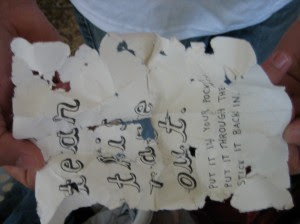 tear
this
out.
PUT IT IN YOUR
PUT IT THROUGH THE
STICK IT BACK IN.